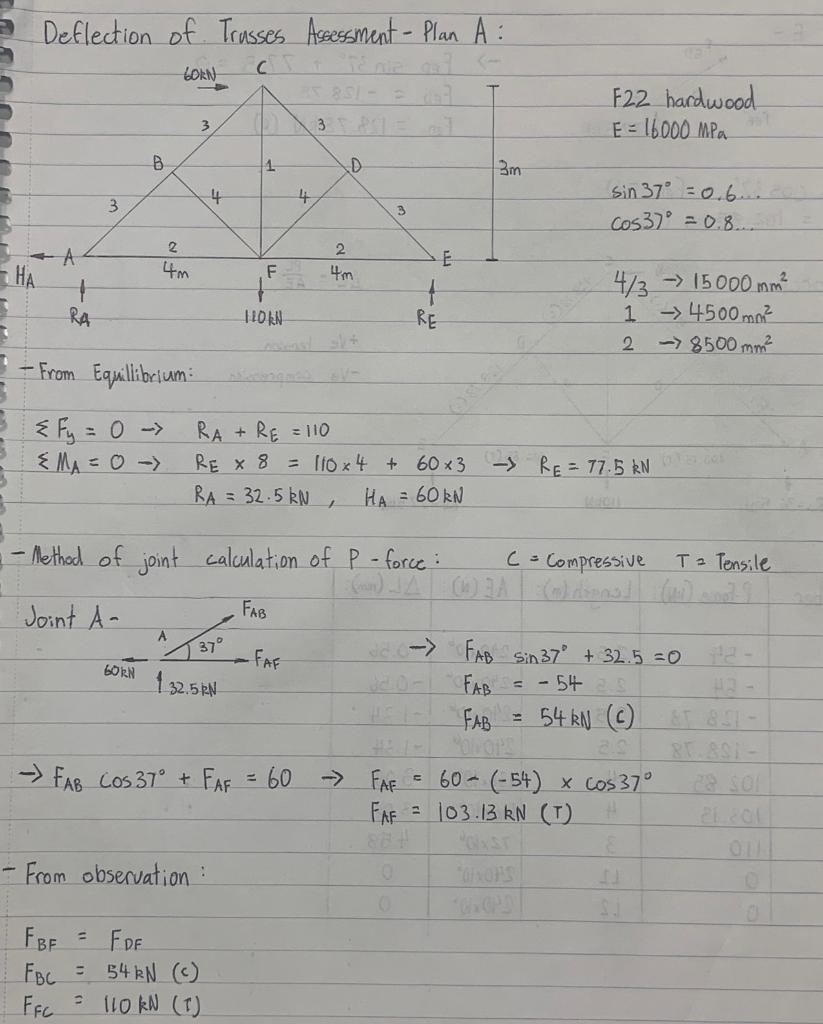 Deflection of Trusses Assessment - Plan A:
60kN C
3 3
B 1 D
4 4
3 3
3m
HA A 2 F 2 E
4m 4m
RA 110kN RE
F22 hardwood
E = 16000 MPa
sin37° = 0.6...
cos37° = 0.8...
4/3 → 15000mm²
1 → 4500mm²
2 → 8500mm²
- From Equillibrium:
ΣFy = 0 → RA + RE = 110
ΣMA = 0 → RE × 8 = 110×4 + 60×3 → RE = 77.5 kN
RA = 32.5kN , HA = 60kN
- Method of joint calculation of P-force: C = Compressive T = Tensile
Joint A-
FAB
A 37° FAF
60kN 32.5kN
→ FAB sin37° + 32.5 = 0
FAB = -54
FAB = 54kN (C)
→ FAB cos37° + FAF = 60 → FAF = 60 - (-54) × cos37°
FAF = 103.13kN (T)
- From observation:
FBF = FDF
FBC = 54kN (C)
FFC = 110kN (T)